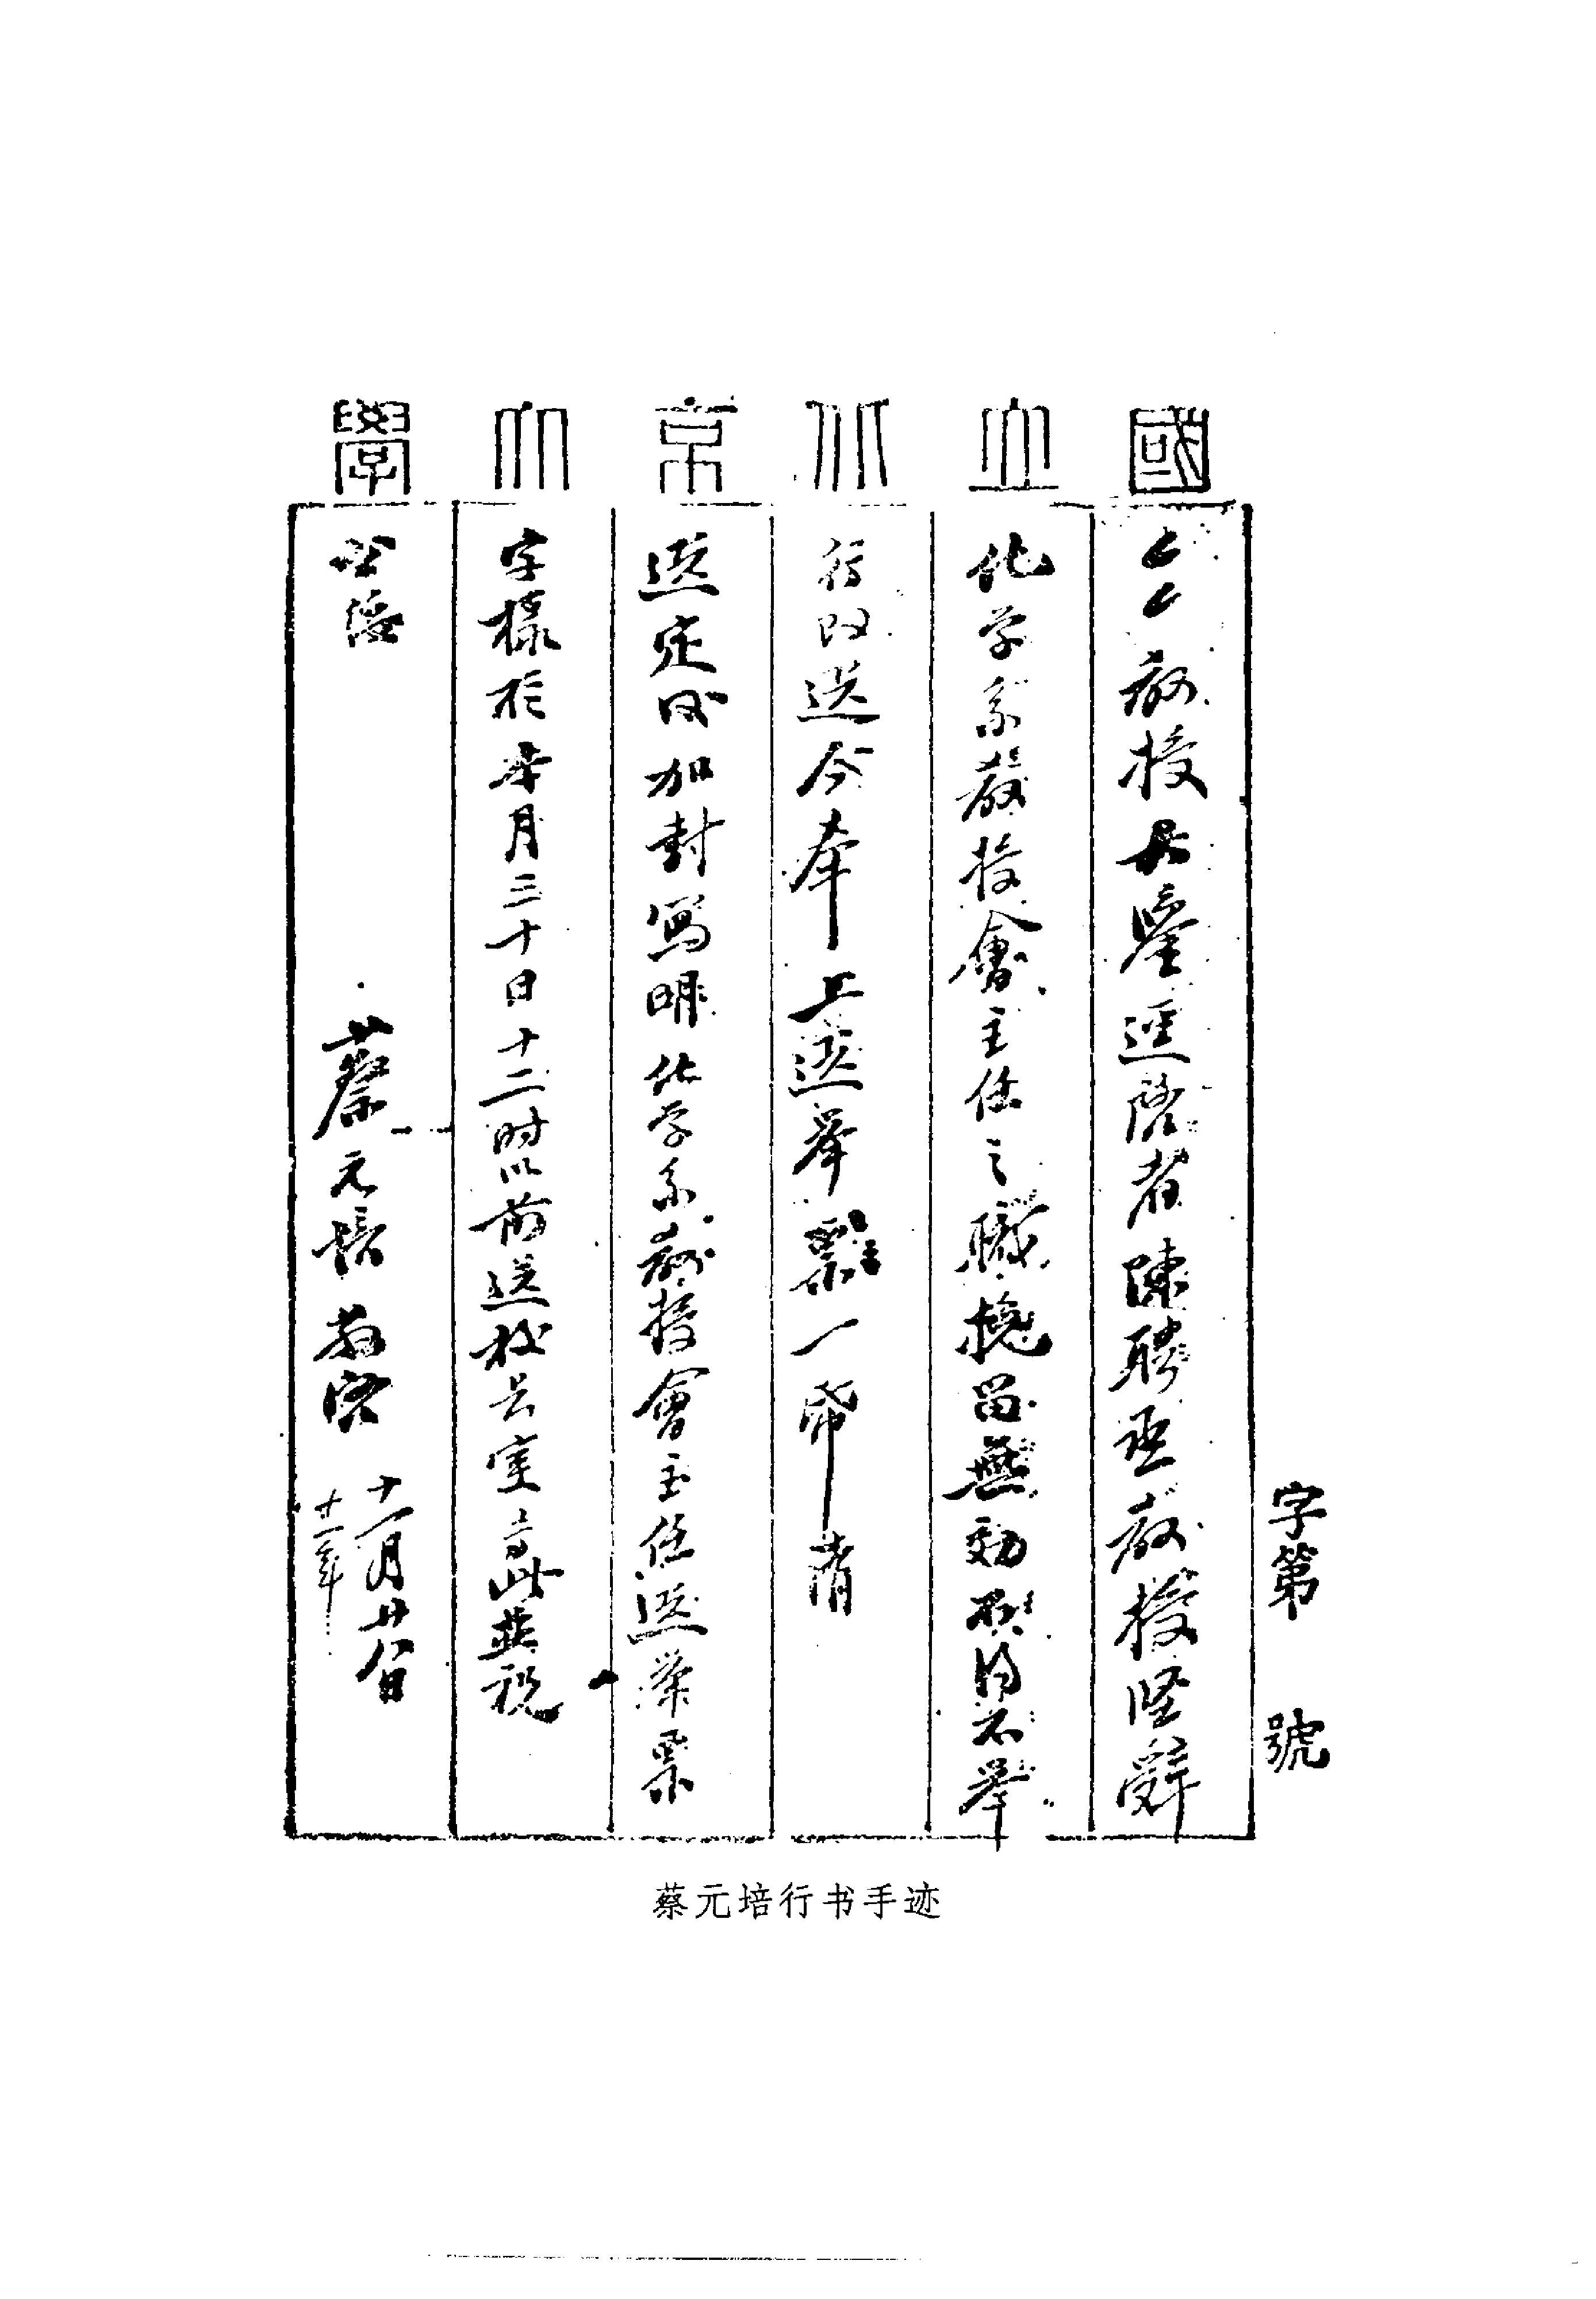 國立北京大學
字第 號
ㄙㄙ教授大鑒逕啓者陳聘丞教授堅辭
化学系教授會主任之職挽留無効不得不舉
行改選今奉上選舉票一希
選定後加封寫明化学系教授會主任選舉票
字樣於本月三十日十二时以前送校长室為此並祝
公綏
蔡元培敬啓 十一月廿八日
十一年
蔡元培行书手迹